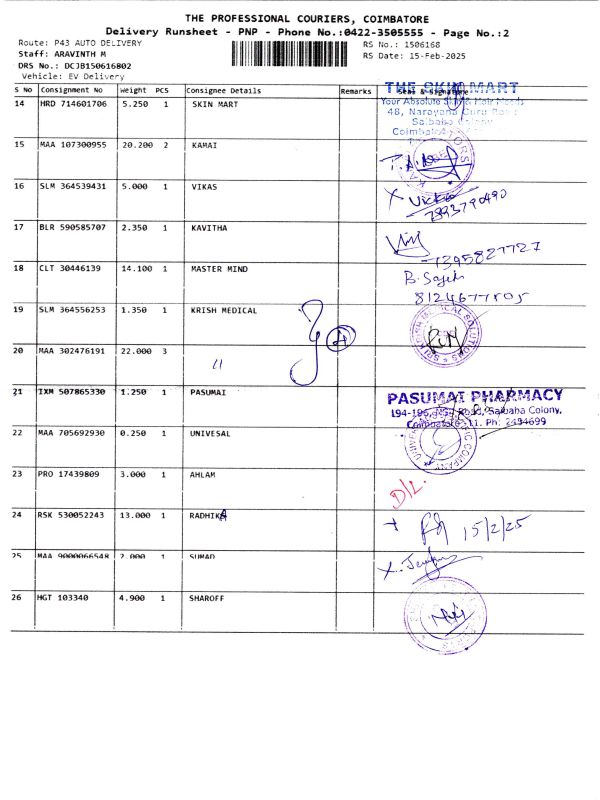 THE PROFESSIONAL COURIERS, COIMBATORE
Delivery Runsheet - PNP - Phone No.:0422-3505555 - Page No.:2
Route: P43 AUTO DELIVERY
RS No.: 1506168
Staff: ARAVINTH M
RS Date: 15-Feb-2025
DRS No.: DCJB150616802
Vehicle: EV Delivery
S No Consignment No Weight PCS Consignee Details Remarks Seal & Signature
THE SKIN MART
14 HRD 714601706 5.250 1 SKIN MART
Your Absolute Skin & Hair Needs
48, Narayana Guru Road
Saibaba Colony
Coimbatore
15 MAA 107300955 20.200 2 KAMAI
16 SLM 364539431 5.000 1 VIKAS
7893790490
17 BLR 590585707 2.350 1 KAVITHA
7395827727
18 CLT 30446139 14.100 1 MASTER MIND
8124677805
19 SLM 364556253 1.350 1 KRISH MEDICAL
4
20 MAA 302476191 22.000 3 "
21 IXM 507865330 1.250 1 PASUMAI
PASUMAI PHARMACY
194-196, NSR Road, Saibaba Colony,
Coimbatore-11. Ph: 2434699
22 MAA 705692930 0.250 1 UNIVESAL
23 PRO 17439809 3.000 1 AHLAM
D/L.
24 RSK 530052243 13.000 1 RADHIKA
15/2/25
25 MAA 9000066548 7.000 1 SUMAD
26 HGT 103340 4.900 1 SHAROFF